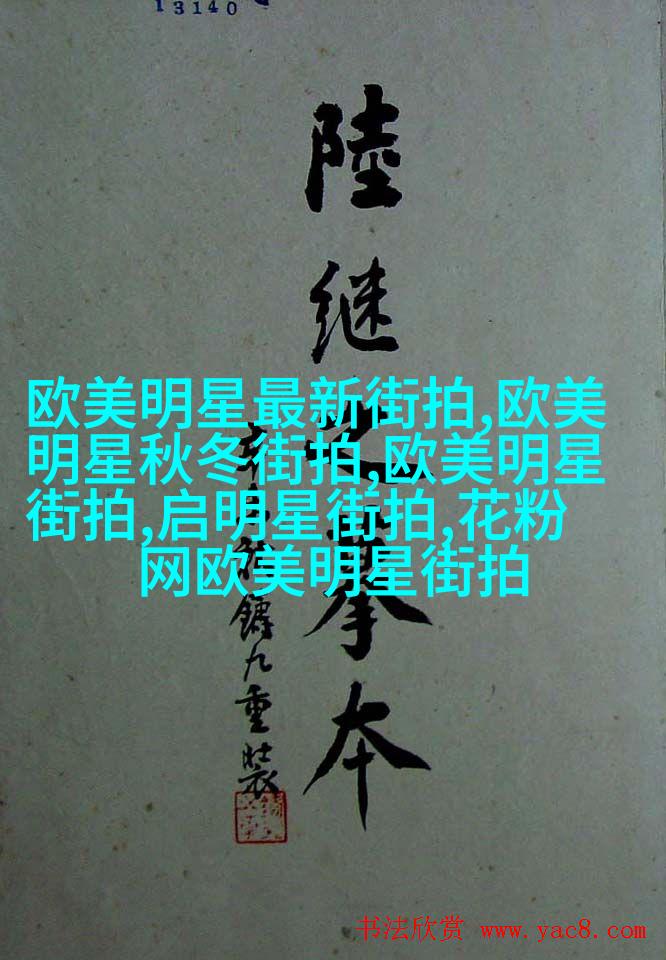 13140
陸继之摹本
欧美明星最新街拍,欧美
明星秋冬街拍,欧美明星
街拍,启明星街拍,花粉
网欧美明星街拍
鑄九重裝
书法欣赏 www.yac8.com